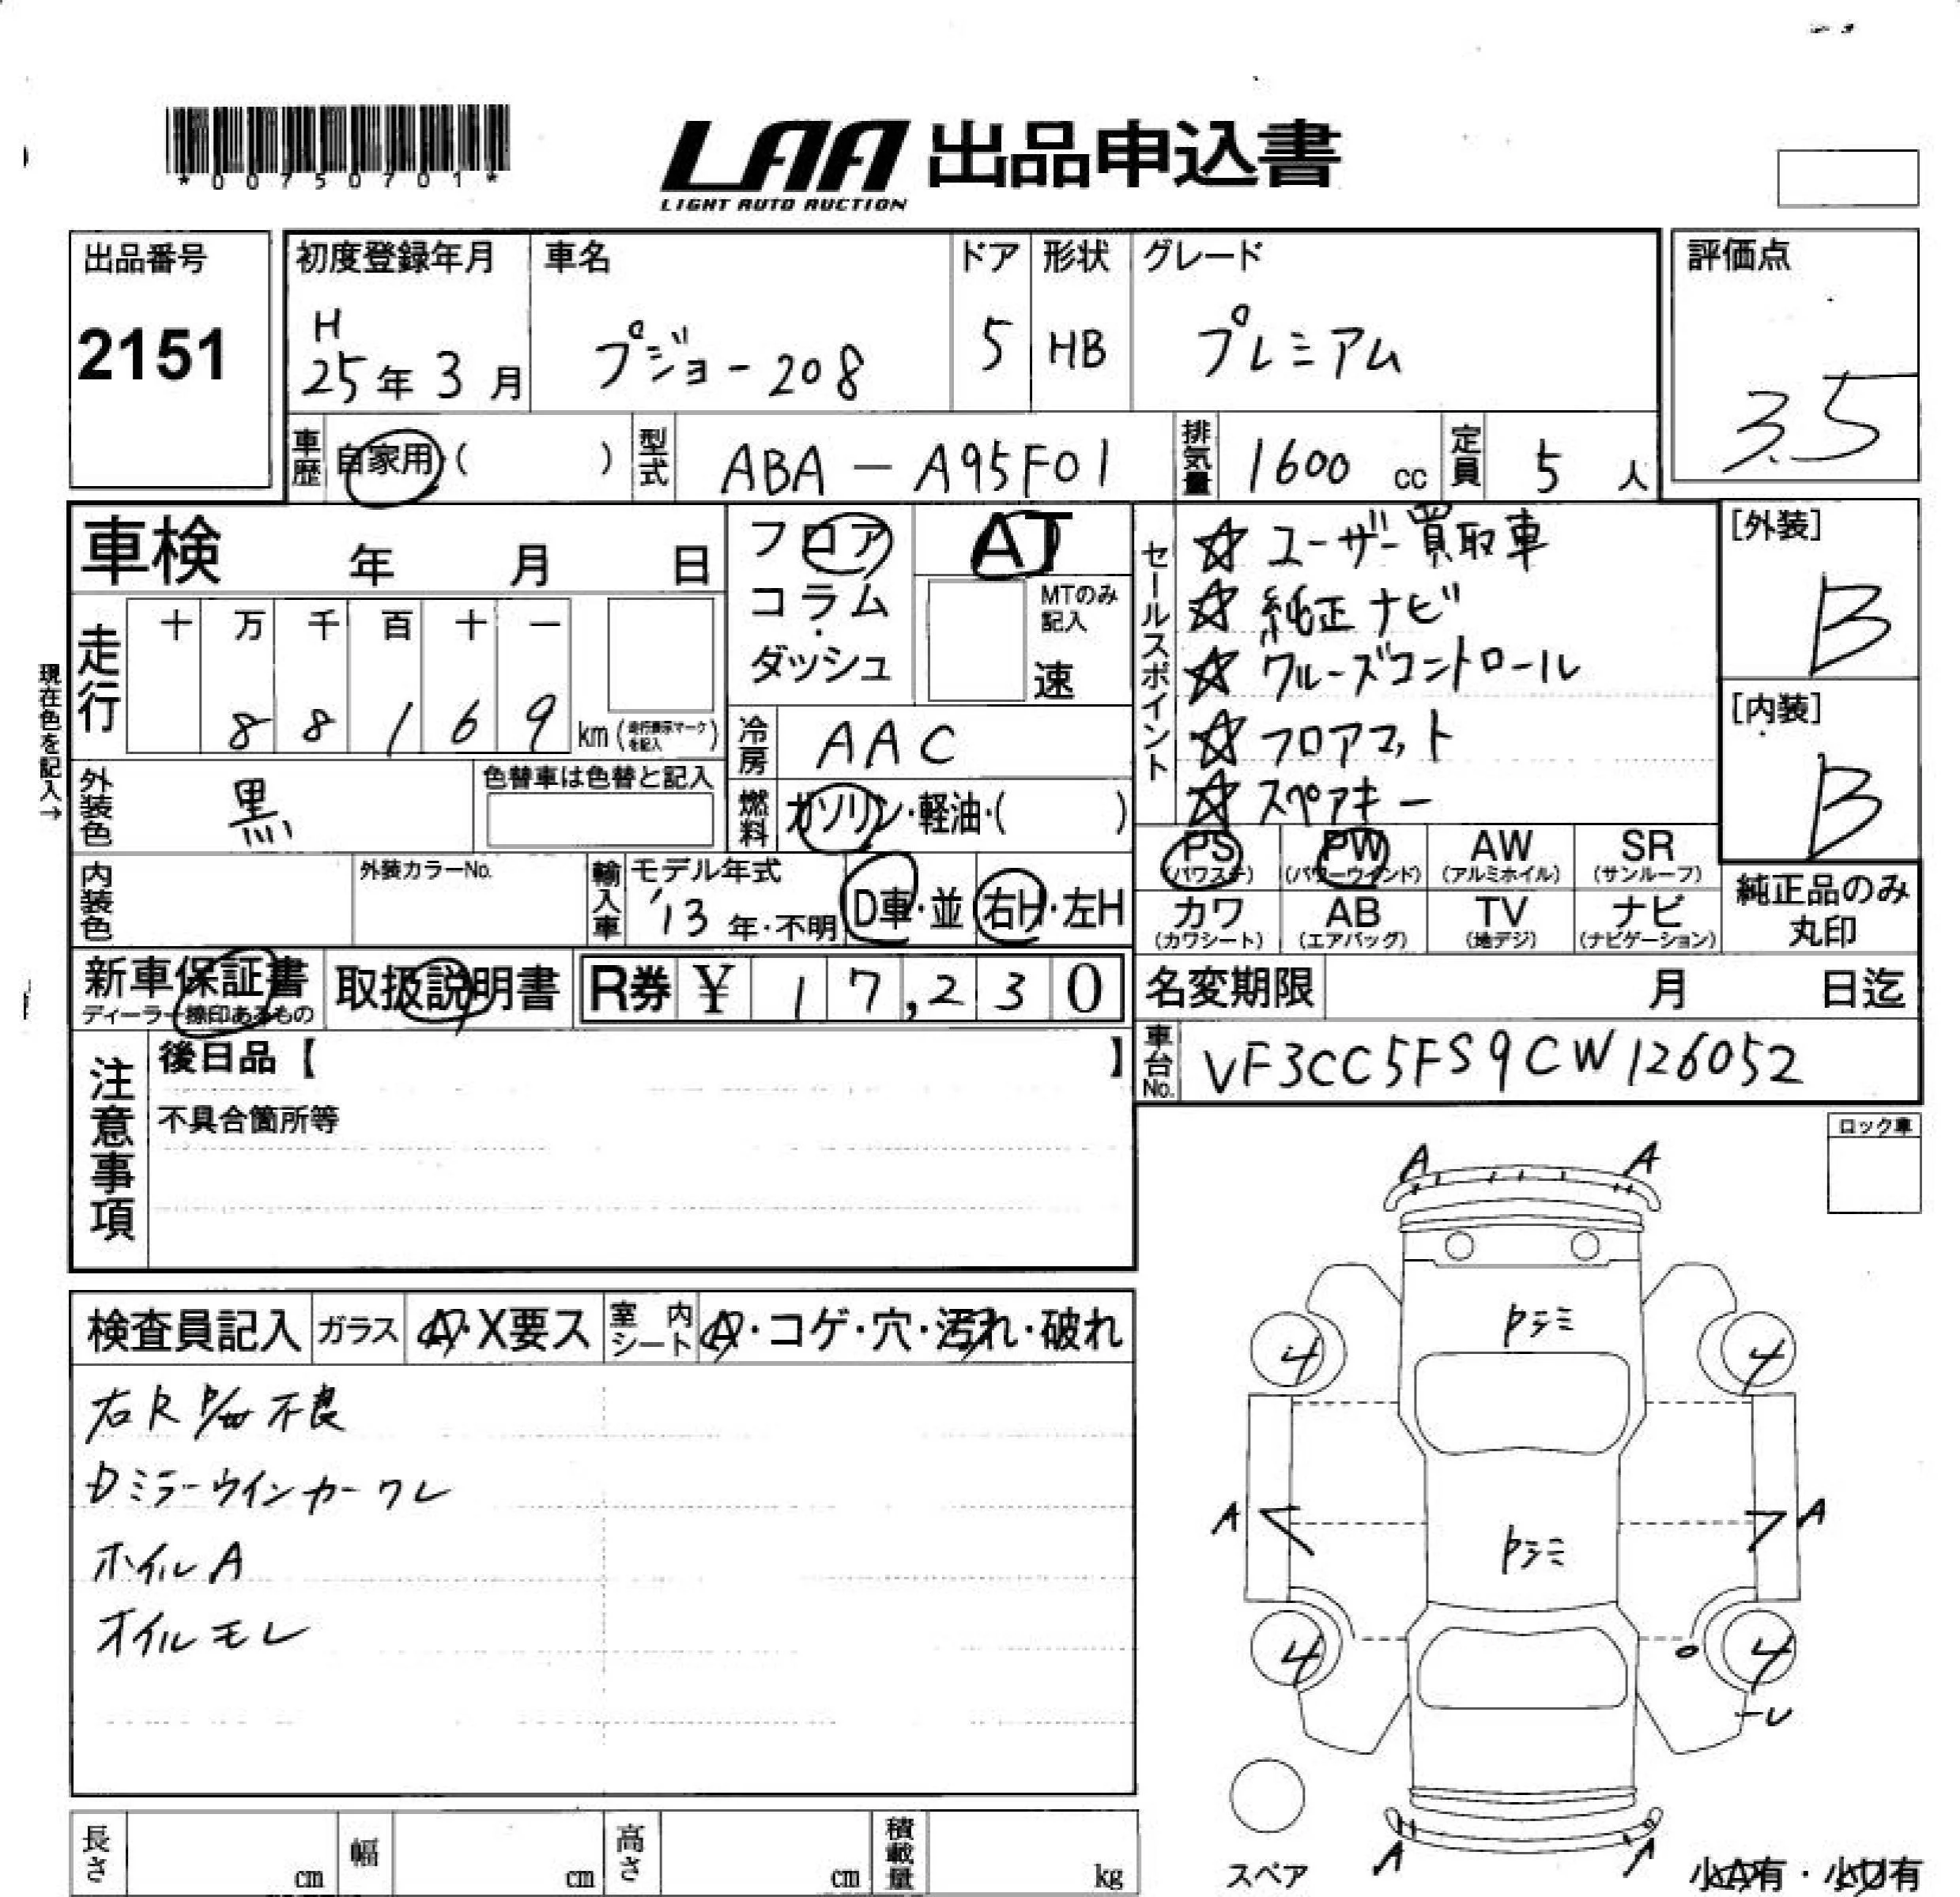 *00750701*
LAA 出品申込書
LIGHT AUTO AUCTION
出品番号
2151
初度登録年月
H
25年 3月
車名
プジョー208
ドア
5
形状
HB
グレード
プレミアム
評価点
3.5
車歴
自家用・( )
型式
ABA-A95F01
排気量
1600 cc
定員
5 人
車検 年 月 日
フロア
コラム・
ダッシュ
AT
MTのみ記入
速
セールスポイント
☆ユーザー買取車
☆純正ナビ
☆クルーズコントロール
☆フロアマット
☆スペアキー
[外装]
B
[内装]
B
走行
十 万 千 百 十 一
8 8 1 6 9 km (走行表示マークを記入)
冷房
AAC
現在色を記入→
外装色
黒
色替車は色替と記入
燃料
ガソリン・軽油・( )
内装色
外装カラーNo.
輸入車
モデル年式
'13 年・不明
D車・並
右H・左H
PS
(パワステ)
PW
(パワーウインド)
AW
(アルミホイル)
SR
(サンルーフ)
カワ
(カワシート)
AB
(エアバッグ)
TV
(地デジ)
ナビ
(ナビゲーション)
純正品のみ
丸印
新車保証書
ディーラー捺印あるもの
取扱説明書
R券 ¥ 17,230
名変期限 月 日迄
車台No.
VF3CC5FS9CW126052
注意事項
後日品【 】
不具合箇所等
ロック車
検査員記入
ガラス
A・X要ス
室内シート
A・コゲ・穴・汚れ・破れ
右R P/W 不良
Dミラーウインカーワレ
ホイルA
オイルモレ
A A
4 4
A A
4 4
A
スペア
小A有・小U有
長さ cm
幅 cm
高さ cm
積載量 kg